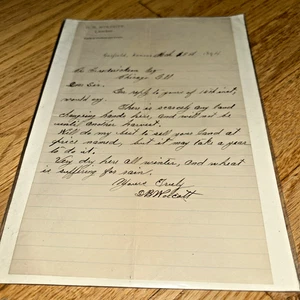 Garfield, Kansas, Mch 21st
Esq
Chicago Ill
Dear Sir.
In reply to yours of 18th inst,
would say.
There is scarcely any land
changing hands here, and will not be
until another harvest.
Will do my best to sell your land at
price named, but it may take a year
to do it.
Very dry here all winter, and wheat
is suffering for rain.
Yours Truly
Wolcott